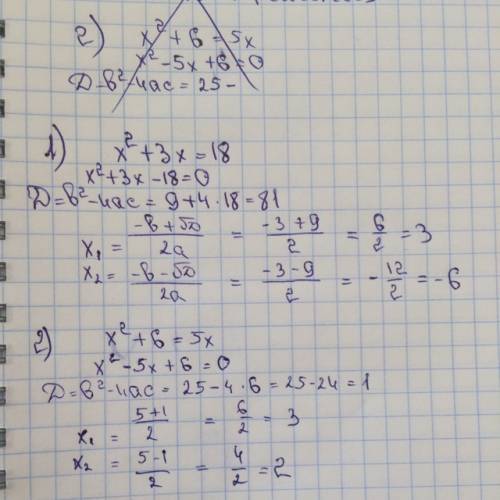 2) x² + 6 = 5x
x² - 5x + 6 = 0
D = b² - 4ac = 25 -
1) x² + 3x = 18
x² + 3x - 18 = 0
D = b² - 4ac = 9 + 4 · 18 = 81
x₁ = (-b + √D)/2a = (-3 + 9)/2 = 6/2 = 3
x₂ = (-b - √D)/2a = (-3 - 9)/2 = -12/2 = -6
2) x² + 6 = 5x
x² - 5x + 6 = 0
D = b² - 4ac = 25 - 4 · 6 = 25 - 24 = 1
x₁ = (5 + 1)/2 = 6/2 = 3
x₂ = (5 - 1)/2 = 4/2 = 2